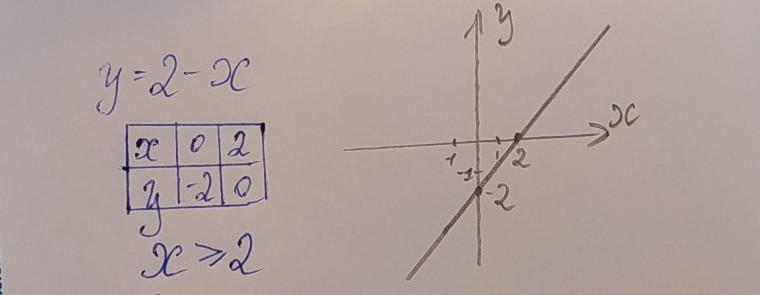 y = 2 - x
x 0 2
y -2 0
x ⩾ 2
y
x
1 1 2
-1
-2